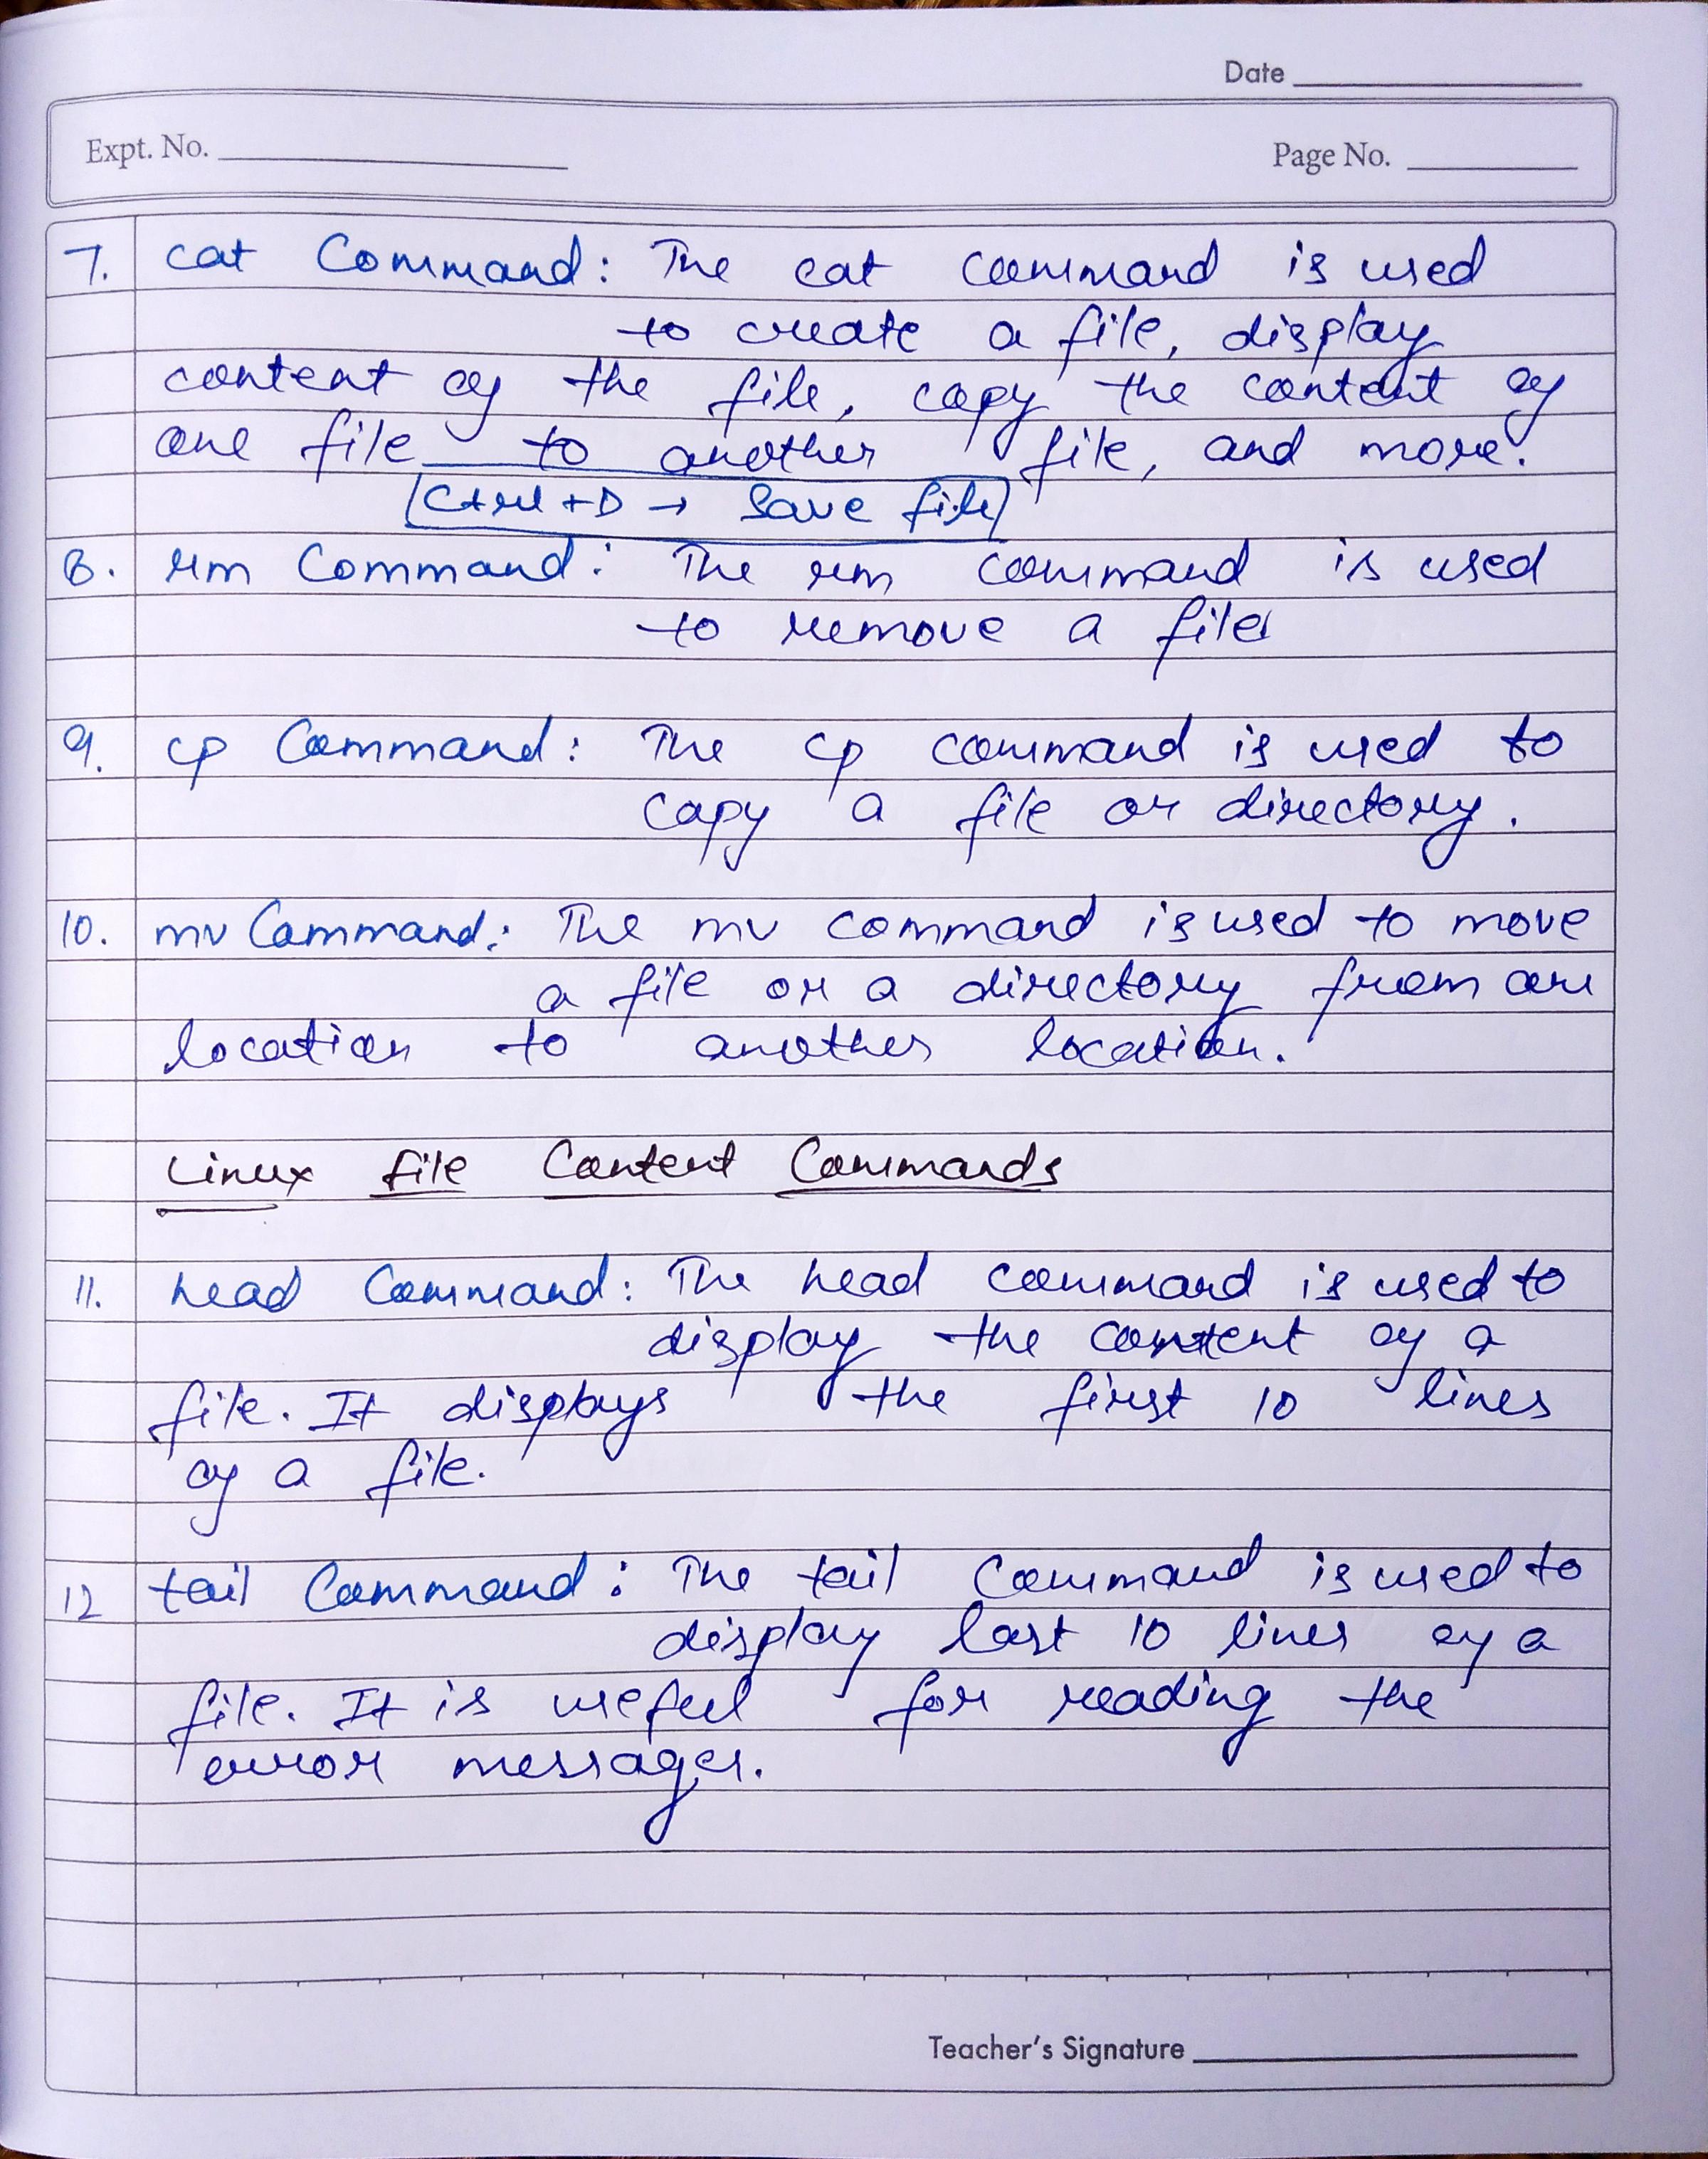 Date
Expt. No.
Page No.
7. cat Command: The cat command is used
to create a file, display
content of the file, copy the content of
one file to another file, and more.
Ctrl+D → Save file
8. rm Command: The rm command is used
to remove a file
9. cp Command: The cp command is used to
copy a file or directory.
10. mv Command: The mv command is used to move
a file or a directory from one
location to another location.
Linux File Content Commands
11. head Command: The head command is used to
display the content of a
file. It displays the first 10 lines
of a file.
12 tail Command: The tail Command is used to
display last 10 lines of a
file. It is useful for reading the
error messages.
Teacher's Signature